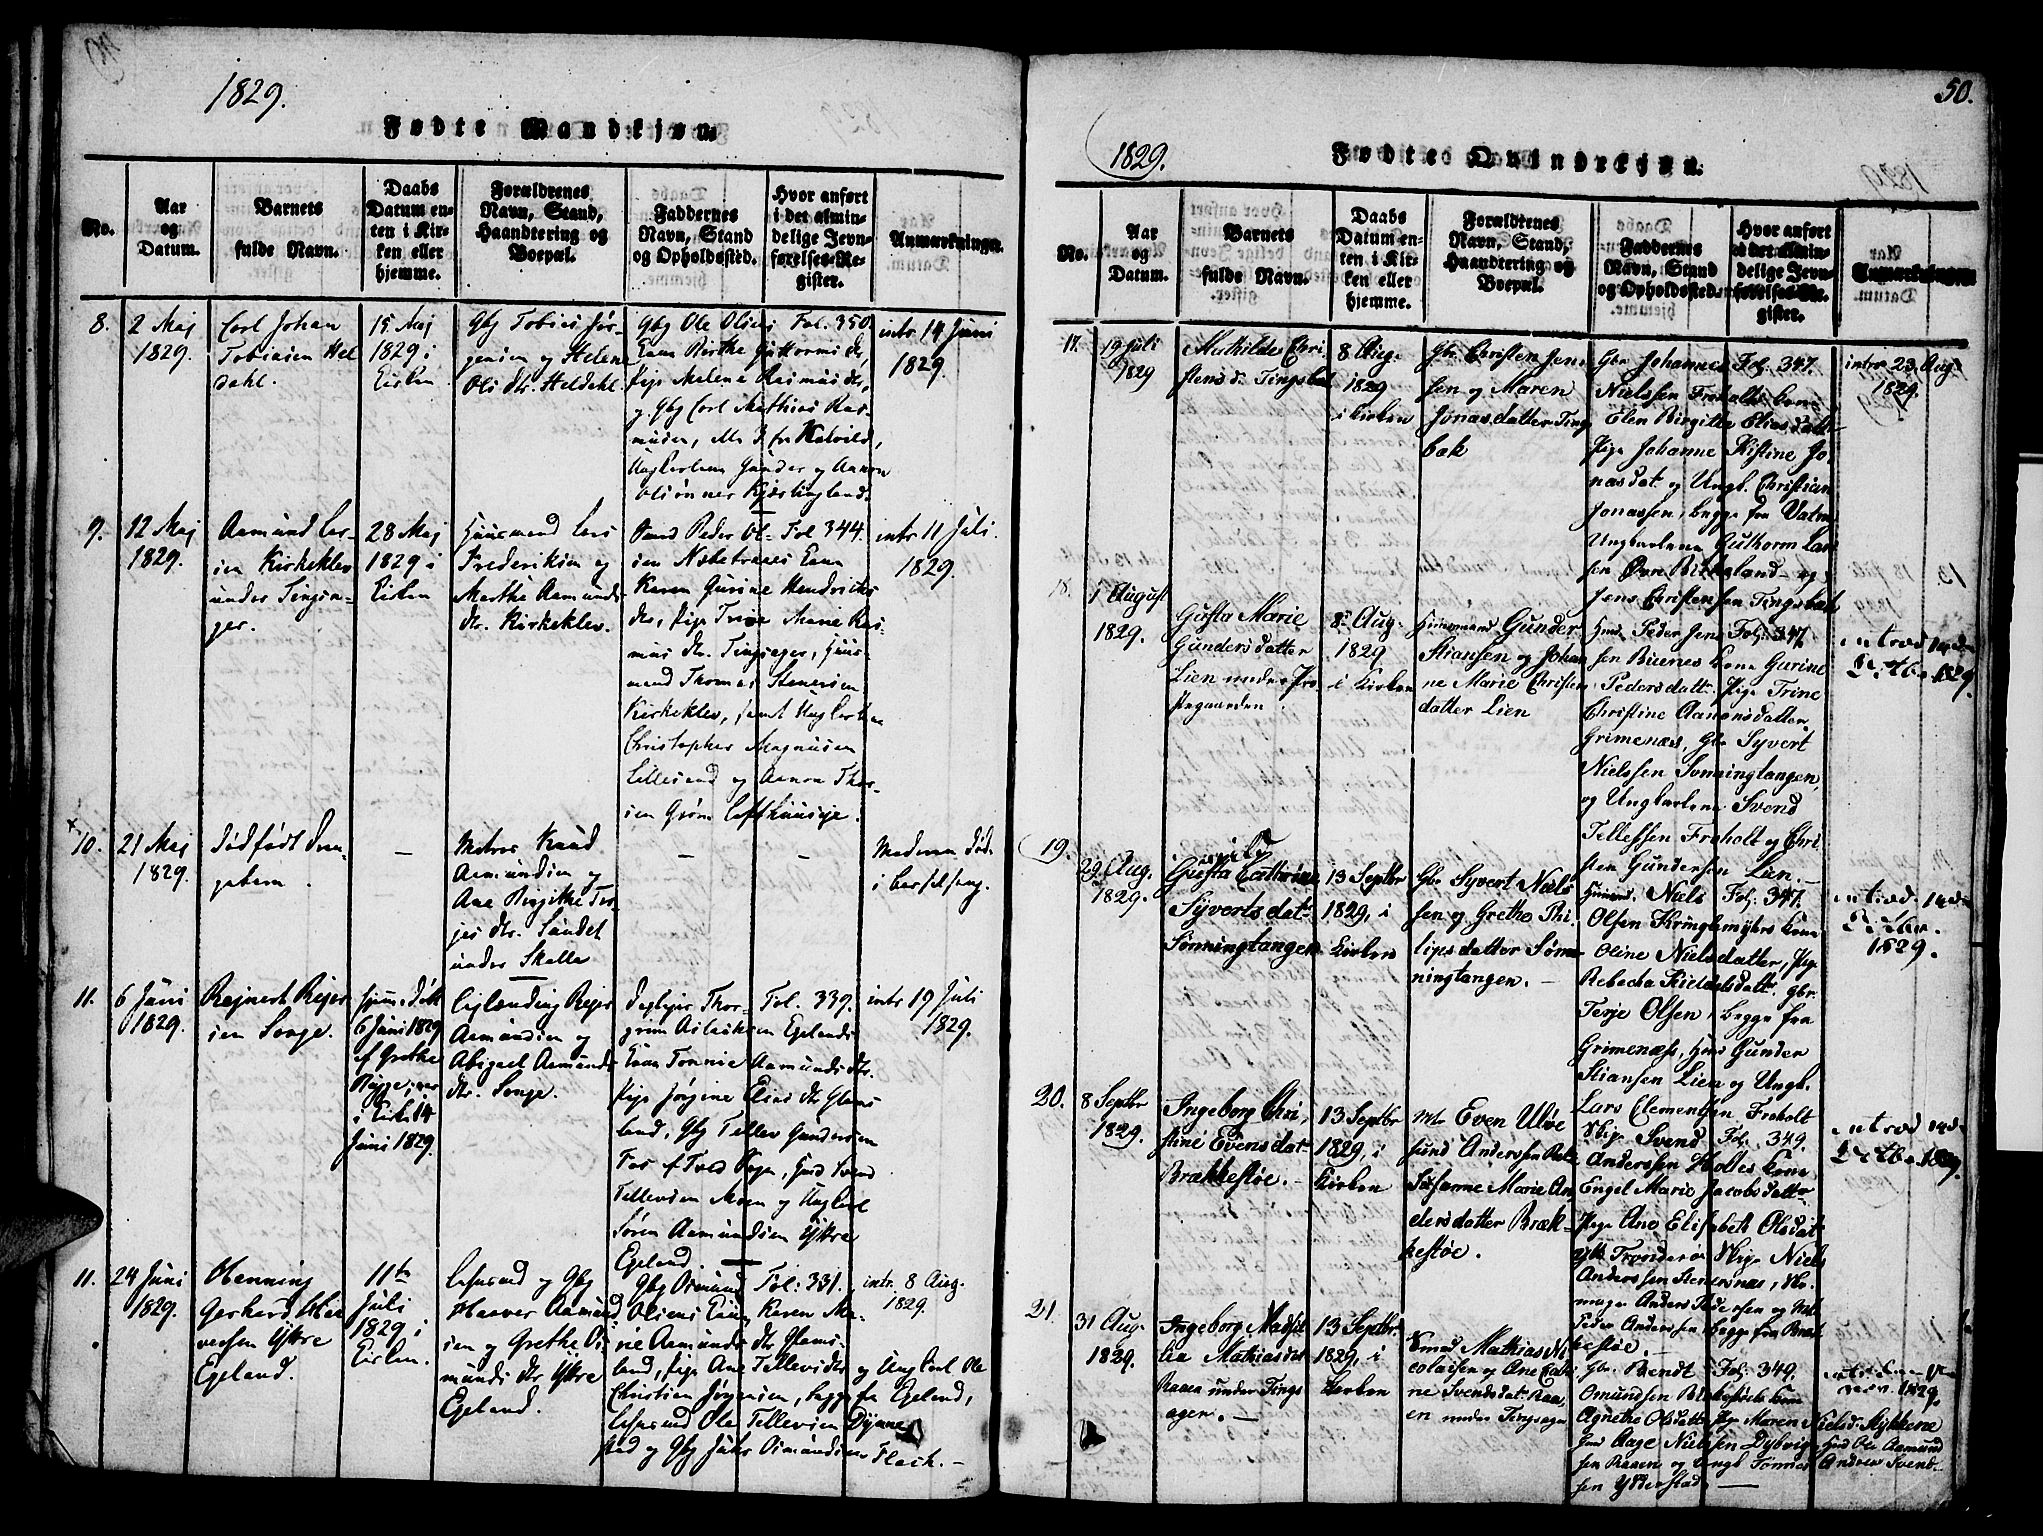 1829.
Fødte Mandkjøn.
No.
Aar
og
Datum.
Barnets
fulde Navn.
Daabs
Datum en-
ten i Kir-
ken eller
hjemme.
Forældrenes
Navn, Stand,
Haandtering og
Boepæl.
Faddernes
Navn, Stand
og Opholdssted.
Hvor anført
i det almin-
delige Jevn-
førelses-Re-
gister.
Anmærkninger.
8.
2 Maj
1829.
Carl Johan
Tobiasen Hel
dahl.
15 Maj
1829 i
Kirken
Gbg Tobias Jør-
gensen og Helene
Olsdtr. Heldahl
Gbg Ole Olsens
Kone Birthe Guttormsdtr,
Pige Malene Rasmusdtr,
og Gbg Carl Mathias Ras-
musen,
Ungkarlene Gunder og Aanon
Olsønner Kjærlingland.
Fol. 350.
intr 14 Juni
1829.
9.
12 Maj
1829.
Aamund Lar-
sen Kirkeklev
under Tingsa-
ger.
28 Maj
1829 i
Kirken
Huusmand Lars
Frederiksen og
Marthe Aamunds
dtr. Kirkeklev.
Peder Ol-
sen Kone
Karen Gurine Hendrichs
dtr, Pige Trine Marie Ras-
mus dtr. Tingsager, Huus-
mand Thomas Stenersen
Kirkeklev, samt Ungkarlene
Christopher Magnusen
Lillesand og Aanon Thor-
sen Grøm
Fol 344.
intr 11 Juli.
1829.
10.
21 Maj
1829.
Dødfødt Dren-
gebarn.
—
Matros Knud
Aamundsen og
Ane Birgitte Ter-
jes dtr. Sandet
under Skalle
—
—
Moderen død
i Barselseng.
11.
6 Juni
1829.
Rejnert Rejer
sen Songe.
Hjem. døbt
6 Juni 1829
af Grethe
Rygge, var
i Kirk. 14
Juni 1829.
Lejlending Rejer
Aamundsen og
Abigael Aamunds
dtr. Songe.
Thor-
grim Aslaksen Egelands
Kone Tonnie Aamundsdtr.
Pige Jørgine Elias dtr Glams
land, Gbg Tellev Gundersen
Fos af Tved Sogn, Svend
Tellevsen Moen og Ungkarl
Søren Aamundsen Yttre
Egeland.
Fol. 339.
intr 19 Juli
1829.
11.
24 Juni
1829.
Henning
Gerhard Haa
versen Yttre
Egeland.
11te
Juli
1829 i
Kirken.
og Gbg
Haaver Aamund
sen og Grethe Os
munds dtr Yttre
Egeland.
Gbg Osmund
Olsens Kone Karen Ma-
rie Aamunds dtr Glams-
land, Pige Ane Tellevsdtr og Ungkarl Ole
Christian Jørgensen, begge fra Egeland,
Ole Tellevsen Dønne
stad og Gbg Osmundsen Flack. —
Fol: 331.
intr. 8 Aug.
1829.
50.
1829.
Fødte Qvindekjøn.
No.
Aar
og
Datum.
Barnets
fulde Navn.
Daabs
Datum en-
ten i Kir-
ken eller
hjemme.
Forældrenes
Navn, Stand,
Haandtering og
Boepæl.
Faddernes
Navn, Stand
og Opholdssted.
Hvor anført
i det almin-
delige Jevn-
førelses-Re-
gister.
Anmærkninger.
17.
19 Juli
1829
Mathilde Chri
stensd. Tingsbak
8 Aug.
1829
i Kirken
Gbr. Christen Jens
sen og Maren
Jonasdatter Tings
bak
Gbr Johannes
Nielssen Froholts kone
Elen Birgitte Eliasdatter
Pige Johanne Kistine Jo-
nasdat. og Ungk. Christian
Jonassen, begge fra Vatne
Ungkarlene Guthorm Lar
sen Øvre Birkeland og
Jens Christensen Tingsbak
Fol. 347.
intr 23. Aug.
1829.
18.
1 August
1829.
Gusta Marie
Gundersdatter
Lien under Præ
stegaarden.
8de Aug.
1829
i Kirken
Huusmand Gunder
Stiansen og Johan
ne Marie Christen
datter Lien
Huusd. Peder Jens
sen Buenes kone Gurine
Pedersdatt. Pige Trine
Christine Aanonsdatter
Grimenæs, Gbr Syvert
Nielssen Sønningtangen,
og Ungkarlene Svend
Tellefsen Froholt og Chri
sten Gundersen Lien. —
Fol. 347.
introd 14de
Octbr 1829.
19.
29. Aug.
1829.
Gusta Cathrine
Syvertsdatr
Sønningtangen
13 Septbr
1829, i
Kirken
Gbr Syvert Niels
sen og Grethe Phi
lipsdatter Søn-
ningtangen. —
Huusmd. Niels
Olsen Kringlemyhrs kone
Oline Nielsdatter, Pige
Rebecka Kieldsdatt. Gbr.
Terje Olsen, begge fra
Grimenæss, Huusd Gunder
Stiansen Lien og Ungk.
Lars Clementsen Froholt
Fol. 347.
introd. 14de
Octbr.
1829.
20.
8 Septbr
1829.
Ingeborg Chri
stine Evensdatr
Brækkestøe. —
13 Septbr
1829, i
Kirken
Mr Even Ulve
sund Anderssen og
Susanne Marie An
dersdatter Bræk-
kestøe.
Skip. Svend
Anderssen Holtes kone
Engel Marie Jacobsdatter
Pige Ane Elisabeth Olsdat
Skip Niels
Anderssen Stenersnæs,
Anders Pedersen og
Peder Anderssen, begge fra Bræk
kestøe. —
Fol. 349.
introd 14de
Octbr 1829.
21.
31 Aug.
1829.
Ingeborg Mathil
da Mathiasdat
Raaen under Tings
agen. —
13 Septbr.
1829, i
Kirken
Smed Mathias Ni
colaisen og Ane Cathri
ne Svendsdat. Raa,
en under Tingsagen
Gbr. Berndt
Omundsen kone
Agnethe Olsdatt, Pige Maren Nielsd. Stykkene
Aage Nielssen Dybvig Huusd Ole Aamund
sen Raaen og Ungk. Tønnes Andreas Svend-
sen Ydderstad —
Fol. 349.
1829.